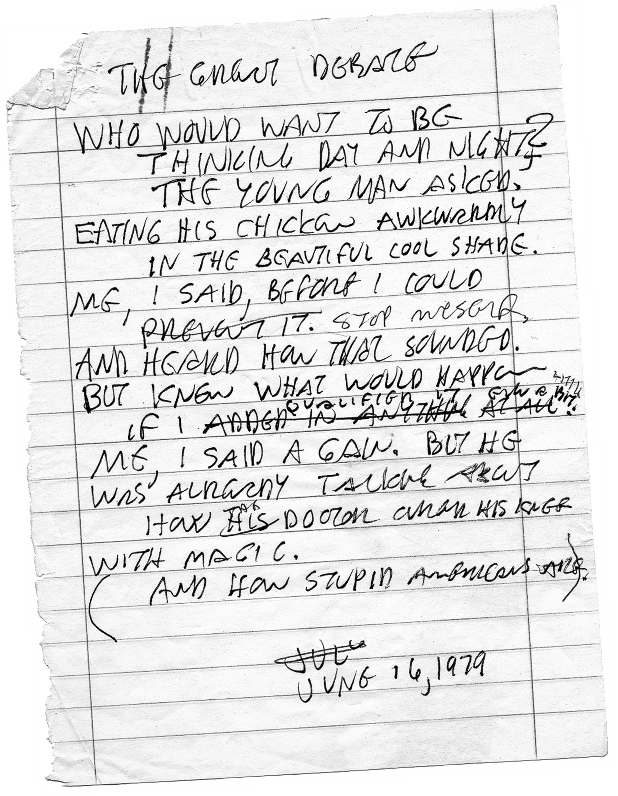 THE GREAT DEBATE
WHO WOULD WANT TO BE
THINKING DAY AND NIGHT?
THE YOUNG MAN ASKED,
EATING HIS CHICKEN AWKWARDLY
IN THE BEAUTIFUL COOL SHADE.
ME, I SAID, BEFORE I COULD
PREVENT IT. STOP MYSELF,
AND HEARD HOW THAT SOUNDED.
BUT KNEW WHAT WOULD HAPPEN
QUALIFIED IT EVEN A BIT.
IF I ADDED IN ANYTHING AT ALL.
ME, I SAID AGAIN. BUT HE
WAS ALREADY TALKING ABOUT
HOW HIS DOCTOR HIS KNEE
WITH MAGIC.
AND HOW STUPID AMERICANS ARE.
JULY
JUNE 16, 1979